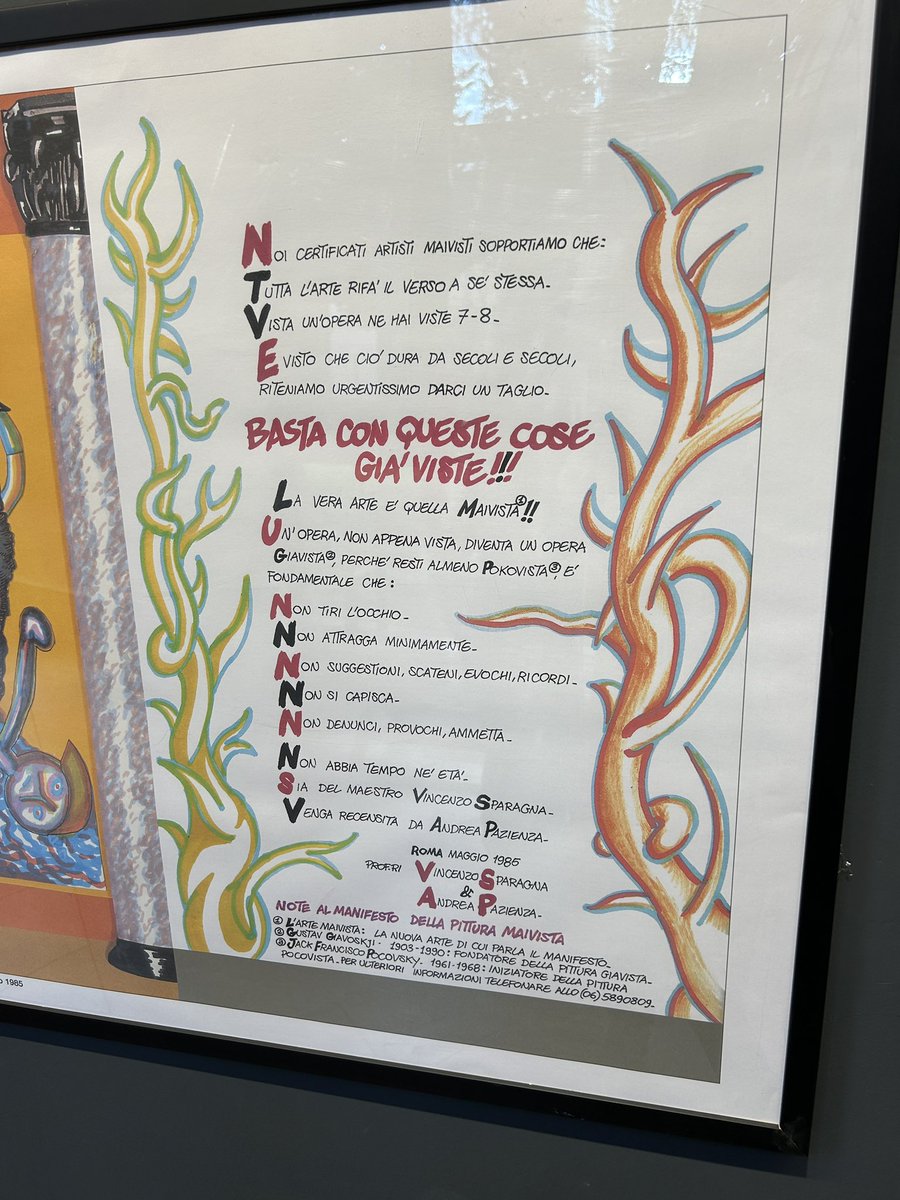 NOI CERTIFICATI ARTISTI MAIVISTI SOPPORTIAMO CHE:
TUTTA L'ARTE RIFA' IL VERSO A SE' STESSA_
VISTA UN'OPERA NE HAI VISTE 7-8_
E VISTO CHE CIO' DURA DA SECOLI E SECOLI,
RITENIAMO URGENTISSIMO DARCI UN TAGLIO_
BASTA CON QUESTE COSE
GIA' VISTE!!!
LA VERA ARTE E' QUELLA MAIVISTA①!!
UN'OPERA, NON APPENA VISTA, DIVENTA UN OPERA
GIAVISTA②, PERCHE' RESTI ALMENO POKOVISTA③, E'
FONDAMENTALE CHE:
NON TIRI L'OCCHIO_
NON ATTRAGGA MINIMAMENTE_
NON SUGGESTIONI, SCATENI, EVOCHI, RICORDI_
NON SI CAPISCA_
NON DENUNCI, PROVOCHI, AMMETTA_
NON ABBIA TEMPO NE' ETA'_
SIA DEL MAESTRO VINCENZO SPARAGNA_
VENGA RECENSITA DA ANDREA PAZIENZA_
ROMA MAGGIO 1985
PROFF.RI VINCENZO SPARAGNA
&
ANDREA PAZIENZA_
NOTE AL MANIFESTO DELLA PITTURA MAIVISTA
① L'ARTE MAIVISTA: LA NUOVA ARTE DI CUI PARLA IL MANIFESTO_
② GUSTAV GIAVOSKJI - 1903-1990: FONDATORE DELLA PITTURA GIAVISTA_
③ JACK FRANCISCO POCOVSKY. 1961-1968: INIZIATORE DELLA PITTURA
POCOVISTA_ PER ULTERIORI INFORMAZIONI TELEFONARE ALLO (06) 5890809_
1985